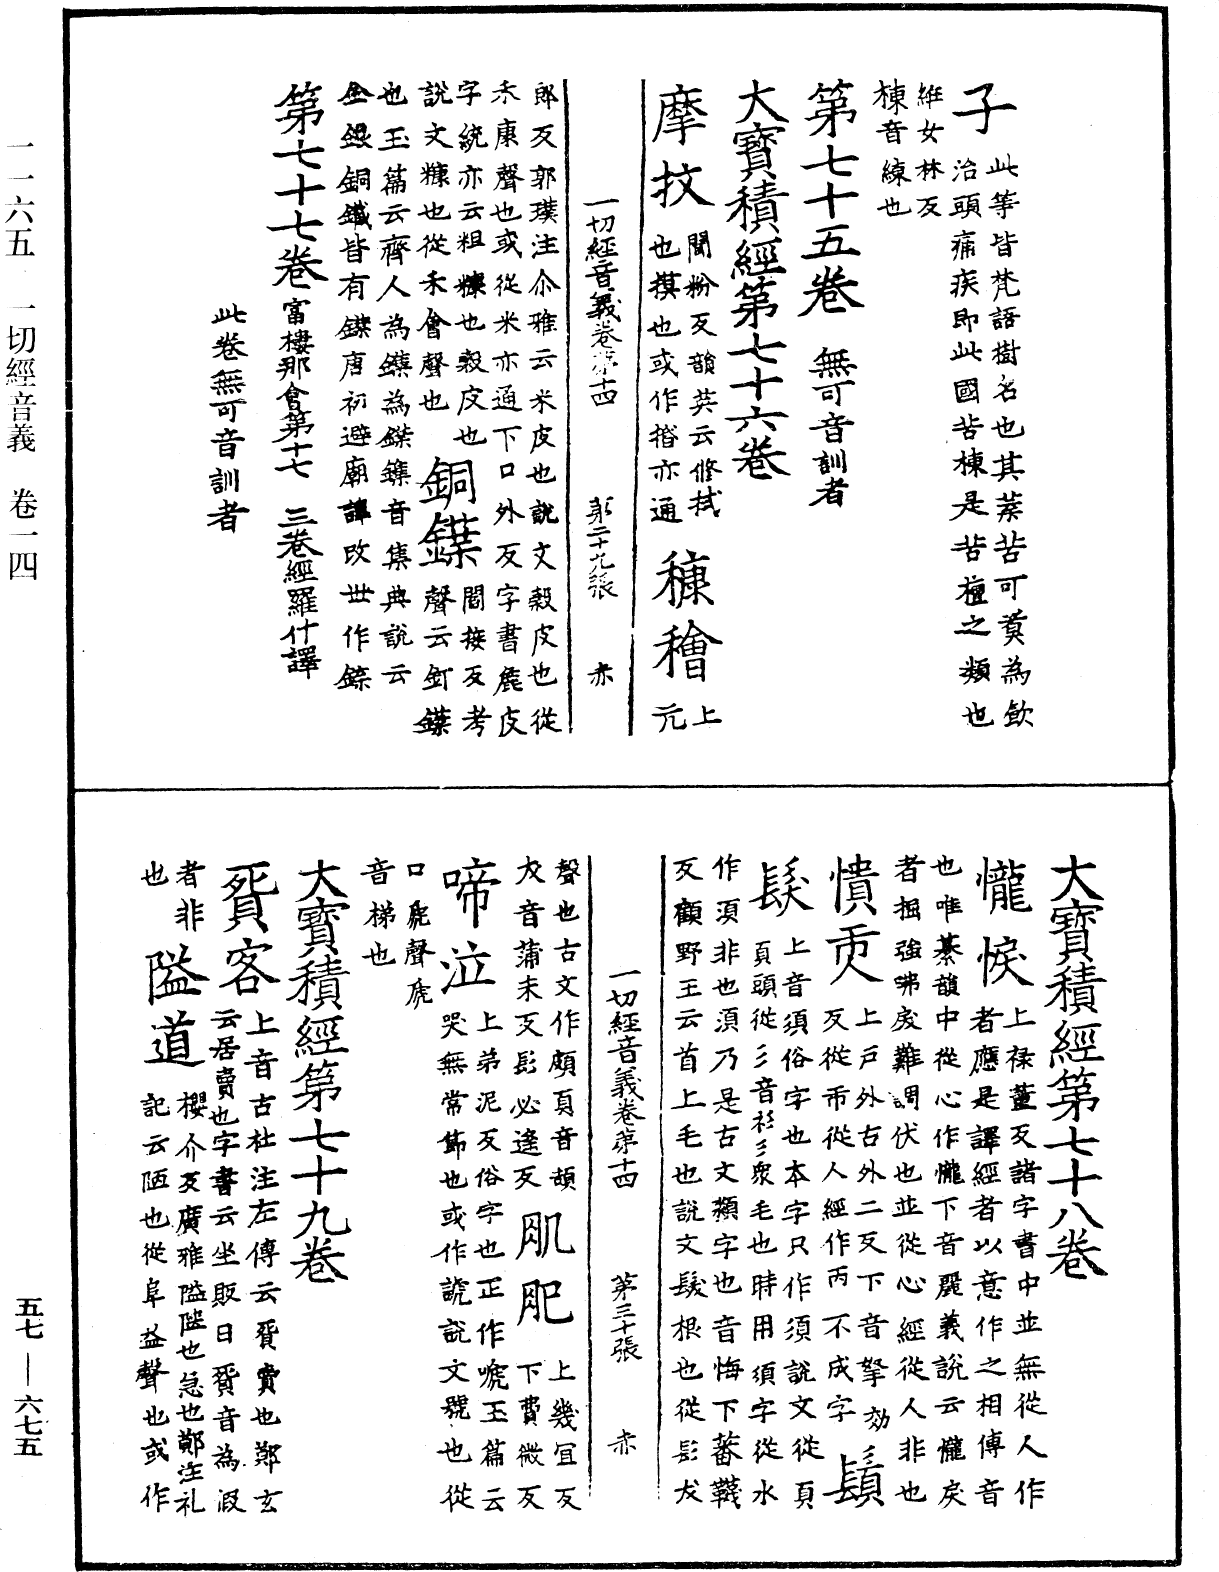 子 此等皆梵語樹名也其葉苦可煑為飲
治頭痛疾即此國苦楝是苦檀之類也
維女林反
楝音練也
第七十五卷 無可音訓者
大寶積經第七十六卷
摩抆 聞粉反韻英云修拭
也摸也或作揩亦通 穅穭 上
亢
一切經音義卷第十四 第二十九張 赤
郎反郭璞注尒雅云米皮也說文穀皮也從
禾康聲也或從米亦通下口外反字書麁皮
字統亦云粗糠也穀皮也
說文糠也從禾會聲也 銅鍱 閻接反考
聲云釘鍱
也玉篇云齊人為鏶為鍱鏶音集典說云
金銀銅鐵皆有鍱唐初避廟諱改世作鍱
第七十七卷 富樓那會第十七 三卷經羅什譯
此卷無可音訓者
大寶積經第七十八卷
儱悷 上祿董反諸字書中並無從人作
者應是譯經者以意作之相傳音
也唯綦韻中從心作儱下音麗義說云儱戾
者掘強咈戾難調伏也並從心經從人非也
憒丙 上戶外古外二反下音拏効
反從帀從人經作丙不成字 鬚
髮 上音須俗字也本字只作須說文從頁
頁頭從彡音衫彡衆毛也時用須字從水
作湏非也湏乃是古文頮字也音悔下蕃韈
反顧野王云首上毛也說文髮根也從髟犮
一切經音義卷第十四 第三十張 赤
聲也古文作頗頁音頡
犮音蒲末反髟必遙反 肌肥 上幾宜反
下費微反
啼泣 上弟泥反俗字也正作嗁玉篇云
哭無常節也或作諕說文號也從
口虒聲虒
音梯也
大寶積經第七十九卷
䝨客 上音古杜注左傳云䝨賣也鄭玄
云居賣也字書云坐販曰䝨音為假
者非 隘道 櫻介反廣雅隘陿也急也鄭注礼
也 記云陋也從阜益聲也或作
一一六五 一切經音義 卷一四
五七—六七五